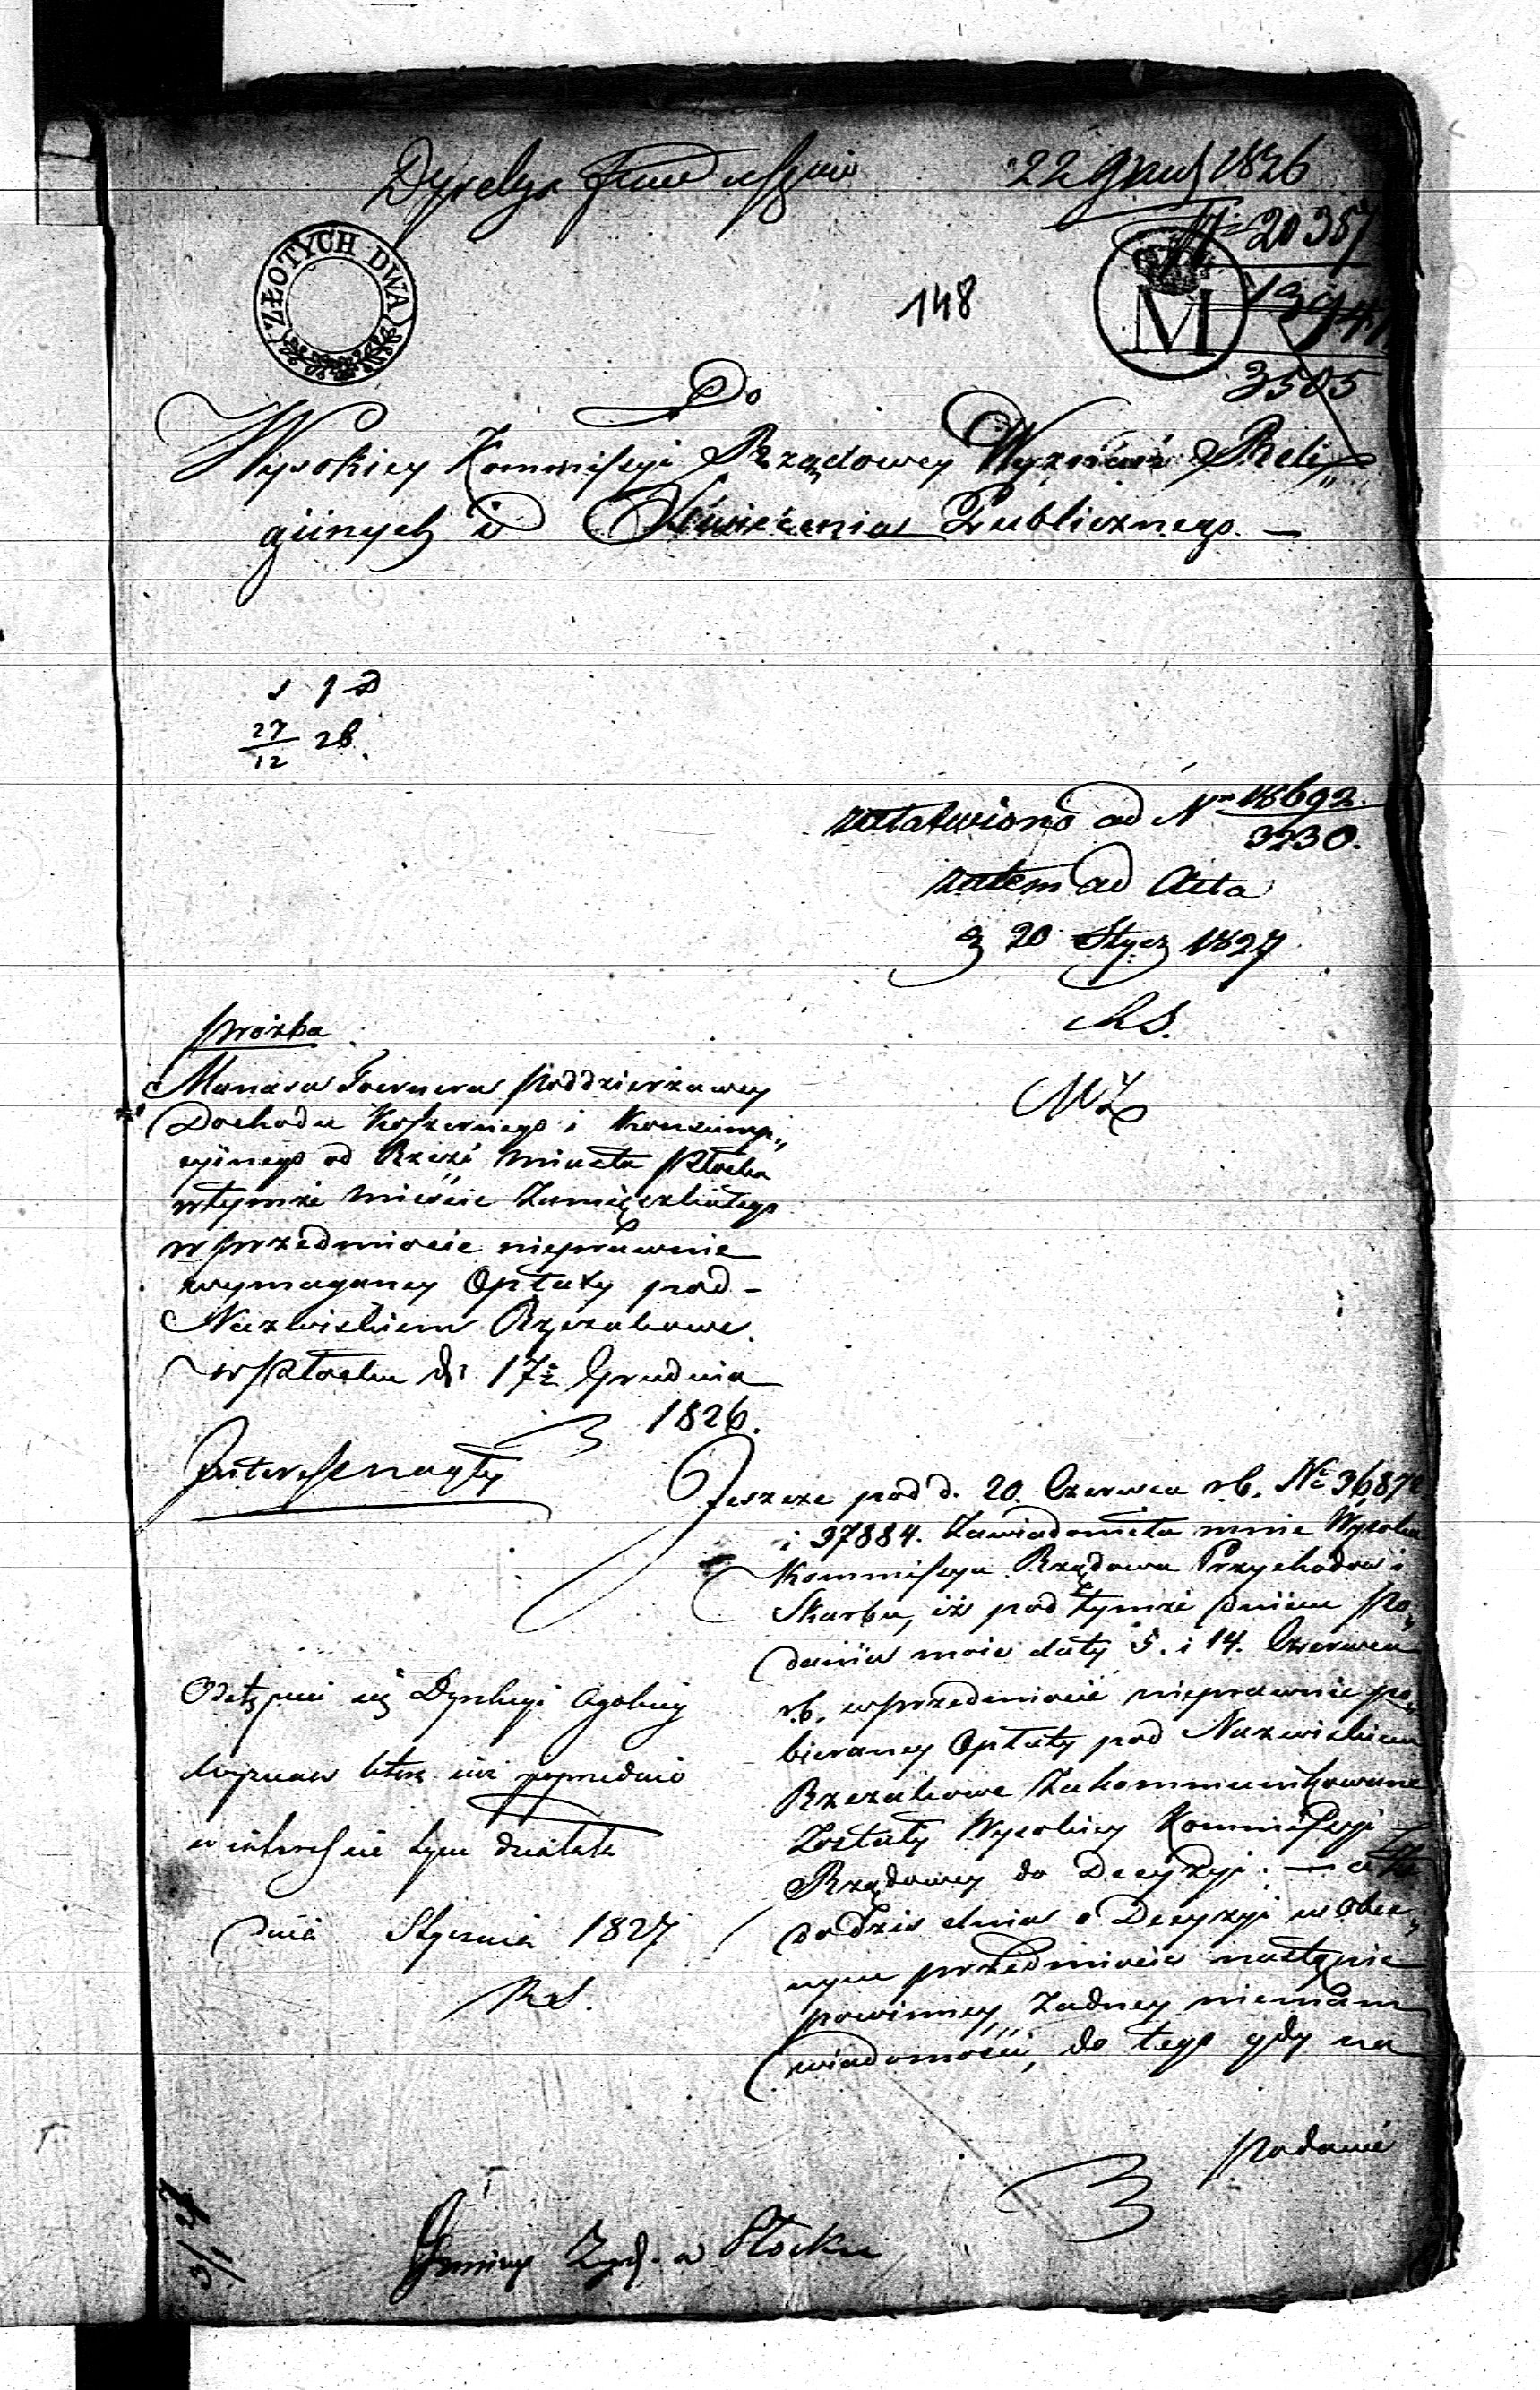 Dyrekcya Funduszów
22 Grud 1826
N 20357
1394
3505
ZŁOTYCH DWA
M
148
Do
Wysokiey Kommissyi Rządowey Wyznań Reli„
giinych i Oświecenia Publicznego. —
27/12 28.
załatwiono ad Nro 18692.
3230.
zatem ad Acta
d 20 Stycz 1827
RS.
prozba
Manasa poddzierżawcy
Dochodu Koszernego i Konsump„
cyinego od Rzezi miasta Płocka
wtymże mieście Zamieszkałego
w przedmiocie nieprawnie
wymaganey Opłaty pod –
Nazwiskiem Rzezakowe.
w Płocku d: 17 Grudnia
1826.
Interess nagły
Jeszcze pod d. 20. Czerwca r.b. No 3687
i 37884. Zawiadomiła mnie Wysoka
Kommissya Rządowa Przychodow i
Skarbu, iż pod tymże dniem Po„
dania moie daty 5. i 14. Czerwca
r.b. w przedmiocie nieprawnie po„
bieraney Opłaty pod Nazwiskiem
Rzezakowe Zakommunikowane
Zostały Wysokiey Kommissyi
Rządowey do Decyzyi. —
do dziś dnia o Decyzyi w obec„
nym przedmiocie nastąpić
powinney, żadney niemam
wiadomości, do tego gdy na
podanie
Odstąpić się Dyrekcyi Ogolney
Wyznań która iuż poprzednio
w interessie tym działała
dnia Stycznia 1827
RS.
Gminy Żyd. w Płocku